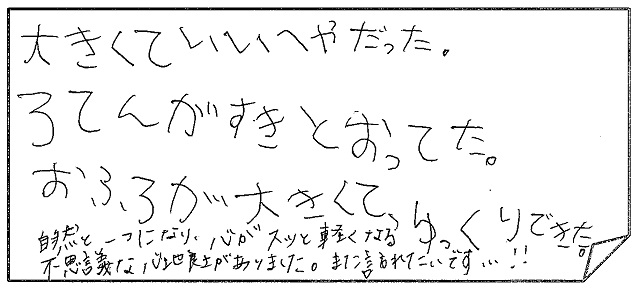 大きくていいへやだった。
ろてんがすきとおってた。
おふろが大きくて、ゆっくりできた。
自然と一つになり、心がスッと軽くなる
不思議な心地良さがありました。また訪れたいです…!!